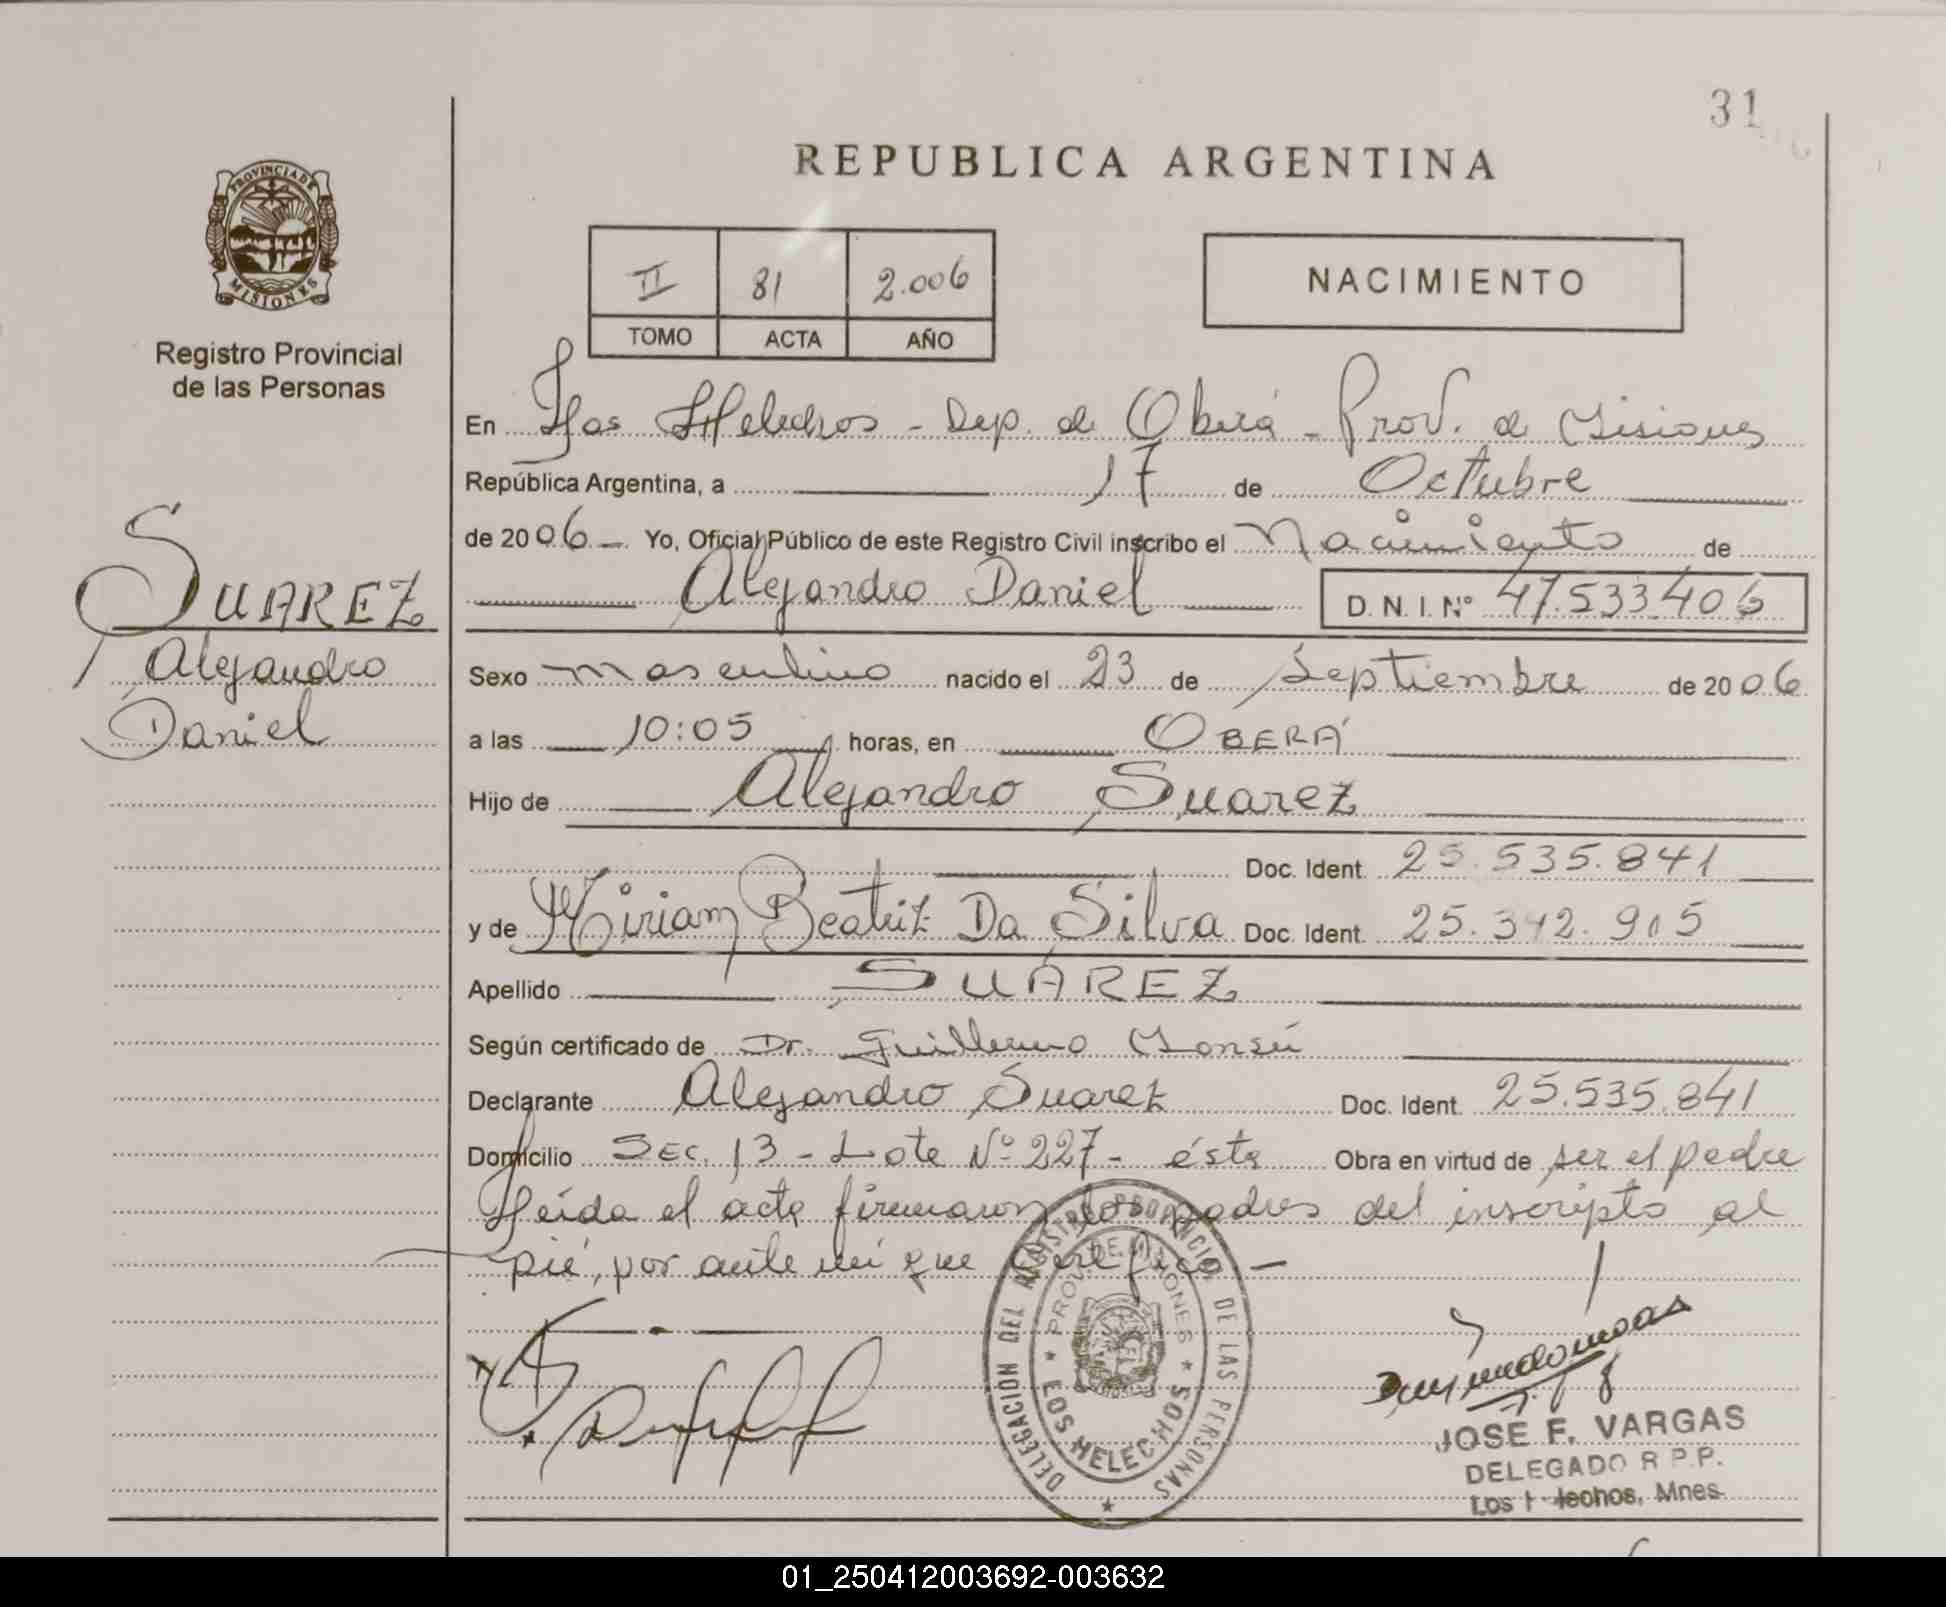 31
PROVINCIA DE
MISIONES
Registro Provincial
de las Personas
REPUBLICA ARGENTINA
II 81 2.006
TOMO ACTA AÑO
NACIMIENTO
SUAREZ
Alejandro
Daniel
En Los Helechos - Dep. de Oberá - Prov. de Misiones
República Argentina, a 17 de Octubre
de 2006 - Yo, Oficial Público de este Registro Civil inscribo el Nacimiento de
Alejandro Daniel D.N.I. Nº 47.533.406
Sexo masculino nacido el 23 de Septiembre de 2006
a las 10:05 horas, en OBERÁ
Hijo de Alejandro Suarez
Doc. Ident. 25.535.841
y de Miriam Beatriz Da Silva Doc. Ident. 25.342.905
Apellido SUÁREZ
Según certificado de Dr. Guillermo
Declarante Alejandro Suarez Doc. Ident. 25.535.841
Domicilio SEC. 13 - Lote Nº 227 - ésta Obra en virtud de ser el padre
Leída el acta firmaron los padres del inscripto al
pié, por ante mí que certifico. -
DELEGACION DEL REGISTRO PROVINCIAL DE LAS PERSONAS
PROV. DE MISIONES
LOS HELECHOS
JOSE F. VARGAS
DELEGADO R.P.P.
Los Helechos, Mnes.
01_250412003692-003632